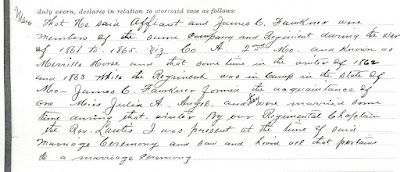 duly sworn, declares in relation to aforesaid case as follows:
That He said Affiant and James C. Fawkner were
members of the same Company and Regiment during the War
of 1861 to 1865. Viz Co A. 2nd Mo. and Known as
Merrills Horse and that some time in the winter of 1862
and 1863 while the Regiment was in Camp in the State of
Mo— James C. Fawkner formed the acquaintance of
one Miss Julia A. and were married some
time during that winter By our Regimental Chaplain
the Rev. I was present at the time of said
Marriage Ceremony and saw and heard all that pertains
to a marriage Ceremony